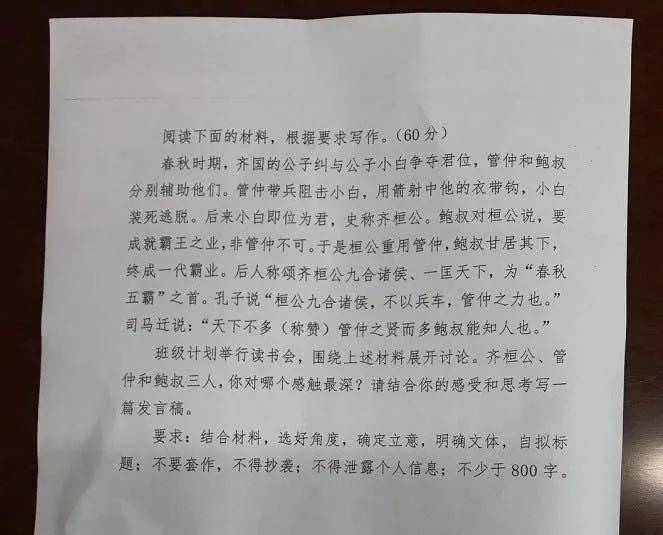 阅读下面的材料，根据要求写作。（60分）
春秋时期，齐国的公子纠与公子小白争夺君位，管仲和鲍叔
分别辅助他们。管仲带兵阻击小白，用箭射中他的衣带钩，小白
装死逃脱。后来小白即位为君，史称齐桓公。鲍叔对桓公说，要
成就霸王之业，非管仲不可。于是桓公重用管仲，鲍叔甘居其下，
终成一代霸业。后人称颂齐桓公九合诸侯、一匡天下，为“春秋
五霸”之首。孔子说“桓公九合诸侯，不以兵车，管仲之力也。”
司马迁说：“天下不多（称赞）管仲之贤而多鲍叔能知人也。”
班级计划举行读书会，围绕上述材料展开讨论。齐桓公、管
仲和鲍叔三人，你对哪个感触最深？请结合你的感受和思考写一
篇发言稿。
要求：结合材料，选好角度，确定立意，明确文体，自拟标
题；不要套作，不得抄袭；不得泄露个人信息；不少于800字。